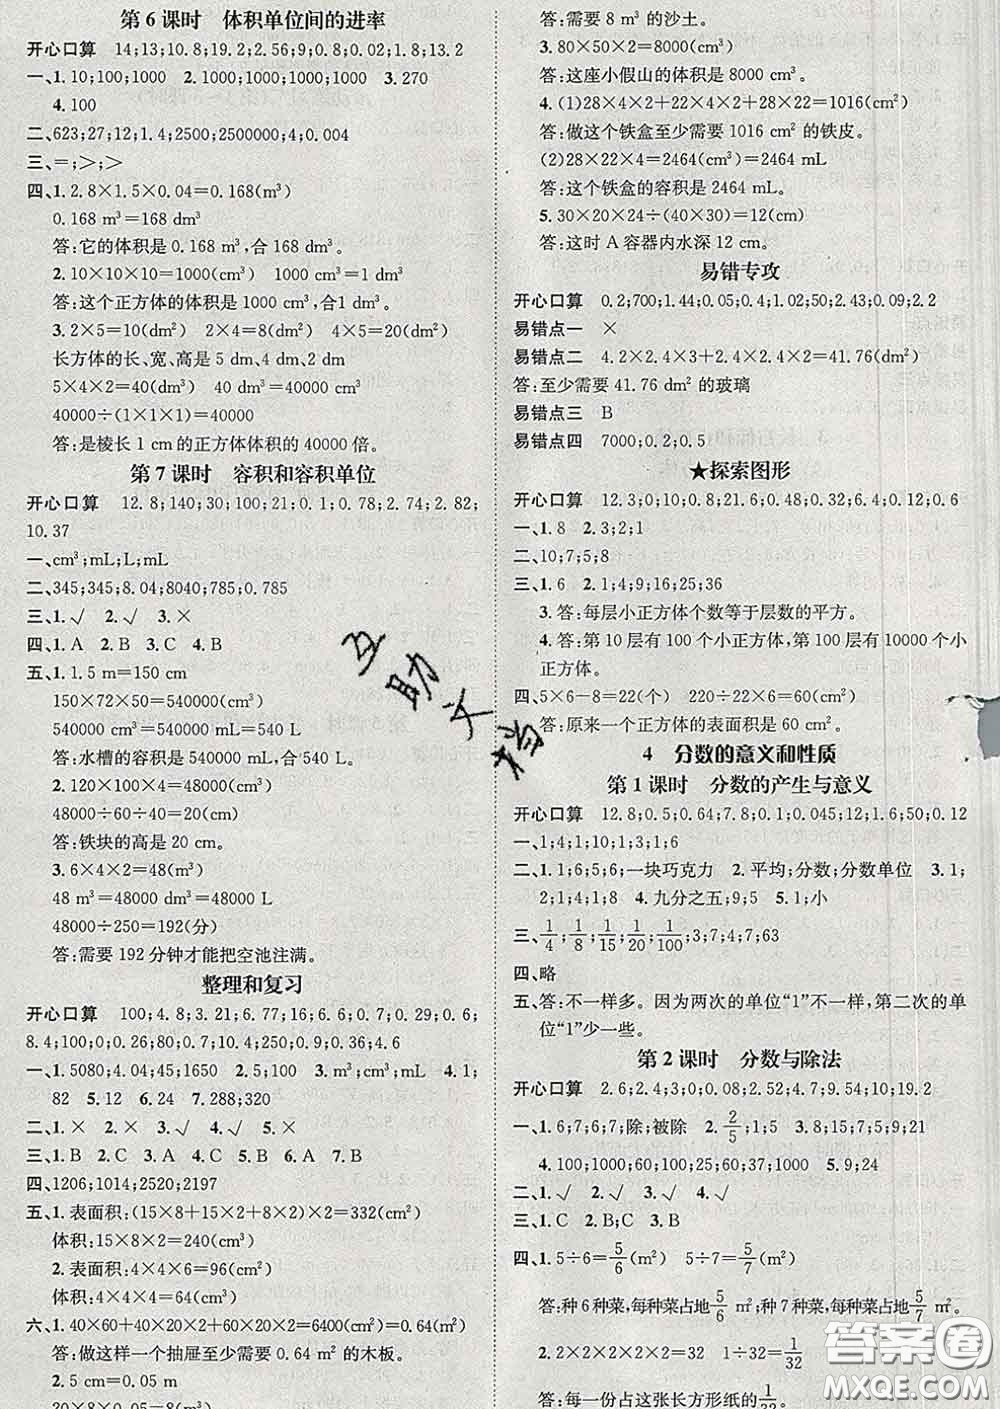 第6课时 体积单位间的进率
开心口算 14;13;10.8;19.2;2.56;9;0.8;0.02;1.8;13.2
一、1.10;100;1000 2.1000;1000 3.270
4.100
二、623;27;12;1.4;2500;2500000;4;0.004
三、=;>;>
四、1.2.8×1.5×0.04=0.168(m³)
0.168 m³=168 dm³
答:它的体积是0.168 m³,合168 dm³。
2.10×10×10=1000(cm³)
答:这个正方体的体积是1000 cm³,合1 dm³。
3.2×5=10(dm²) 2×4=8(dm²) 4×5=20(dm²)
长方体的长、宽、高是5 dm、4 dm、2 dm。
5×4×2=40(dm³) 40 dm³=40000(cm³)
40000÷(1×1×1)=40000
答:是棱长1 cm的正方体体积的40000倍。
第7课时 容积和容积单位
开心口算 12.8;140;30;100;21;0.1;0.78;2.74;2.82;
10.37
一、cm³;mL;L;mL
二、345;345;8.04;8040;785;0.785
三、1.√ 2.√ 3.×
四、1.A 2.B 3.C 4.B
五、1.1.5 m=150 cm
150×72×50=540000(cm³)
540000 cm³=540000 mL=540 L
答:水槽的容积是540000 mL,合540 L。
2.120×100×4=48000(cm³)
48000÷60÷40=20(cm)
答:铁块的高是20 cm。
3.6×4×2=48(m³)
48 m³=48000 dm³=48000 L
48000÷250=192(分)
答:需要192分钟才能把空池注满。
整理和复习
开心口算 100;4.8;3.21;6.77;16;6.6;0.7;0.29;0.6;
8.4;100;0;0.26;80;0.7;10.4;250;0.9;0.36;4.6
一、1.5080;4.04;45;1650 2.5;100 3.m³;cm³;mL 4.1;
82 5.12 6.24 7.288;320
二、1.× 2.× 3.√ 4.√ 5.×
三、1.B 2.C 3.A 4.C 5.B
四、1206;1014;2520;2197
五、1.表面积:(15×8+15×2+8×2)×2=332(cm²)
体积:15×8×2=240(cm³)
2.表面积:4×4×6=96(cm²)
体积:4×4×4=64(cm³)
六、1.40×60+40×20×2+60×20×2=6400(cm²)
答:做这样一个抽屉至少需要0.64 m²的木板。
2.5 cm=0.05 m
答:需要8 m³的沙土。
3.80×50×2=8000(cm³)
答:这座小假山的体积是8000 cm³。
4.(1)28×4×2+22×4×2+28×22=1016(cm²)
答:做这个铁盒至少需要1016 cm²的铁皮。
(2)28×22×4=2464(cm³)=2464 mL
答:这个铁盒的容积是2464 mL。
5.30×20×24÷(40×30)=12(cm)
答:这时A容器内水深12 cm。
易错专攻
开心口算 0.2;700;1.44;0.05;0.4;1.02;50;2.43;0.09;2.2
易错点一 ×
易错点二 4.2×2.4×3+2.4×2.4×2=41.76(dm²)
答:至少需要41.76 dm²的玻璃
易错点三 B
易错点四 7000;0.2;0.5
★探索图形
开心口算 12.3;0;10;0.8;21.6;0.48;0.32;6.4;0.12;0.6
一、1.8 2.3;2;1
二、10;7;5;8
三、1.6 2.1;4;9;16;25;36
3.答:每层小正方体个数等于层数的平方。
4.答:第10层有100个小正方体,第100层有10000个小
正方体。
四、5×6-8=22(个) 220÷22×6=60(cm²)
答:原来一个正方体的表面积是60 cm²。
4 分数的意义和性质
第1课时 分数的产生与意义
开心口算 12.8;0.5;0.64;7.8;0.1;0.045;12;1.6;50;0.12
一、1;4;1;10;1;3;1;6
二、1.1;6;5;6;一块巧克力 2.平均;分数;分数单位 3.1;
2;1;4;1;8 4.九分之五;9;5 5.1;小
三、1/4;1/8;1/15;1/20;1/100;3;7;4;7;63
四、略
五、答:不一样多。因为两次的单位“1”不一样,第二次的单
位“1”少一些。
第2课时 分数与除法
开心口算 2.6;2.4;3;0;0.08;2.52;4.7;9.54;10;19.2
一、1.6;7;6;7;除;被除 2.2/5;1;5 3.8;15;7;50;9;21
4.100;1000;60;100;25;30;37;1000 5.9;24
二、1.√ 2.√ 3.√ 4.√
三、1.C 2.B 3.C
四、1.5÷6=5/6(m²) 5÷7=5/7(m²)
答:种6种菜,每种菜占地5/6 m²;种7种菜,每种菜占地5/7 m²。
2.2×2×2×2×2=32 1÷32=1/32
答:每一份占这张长方形纸的
互助文档
答案圈
MXQE.COM